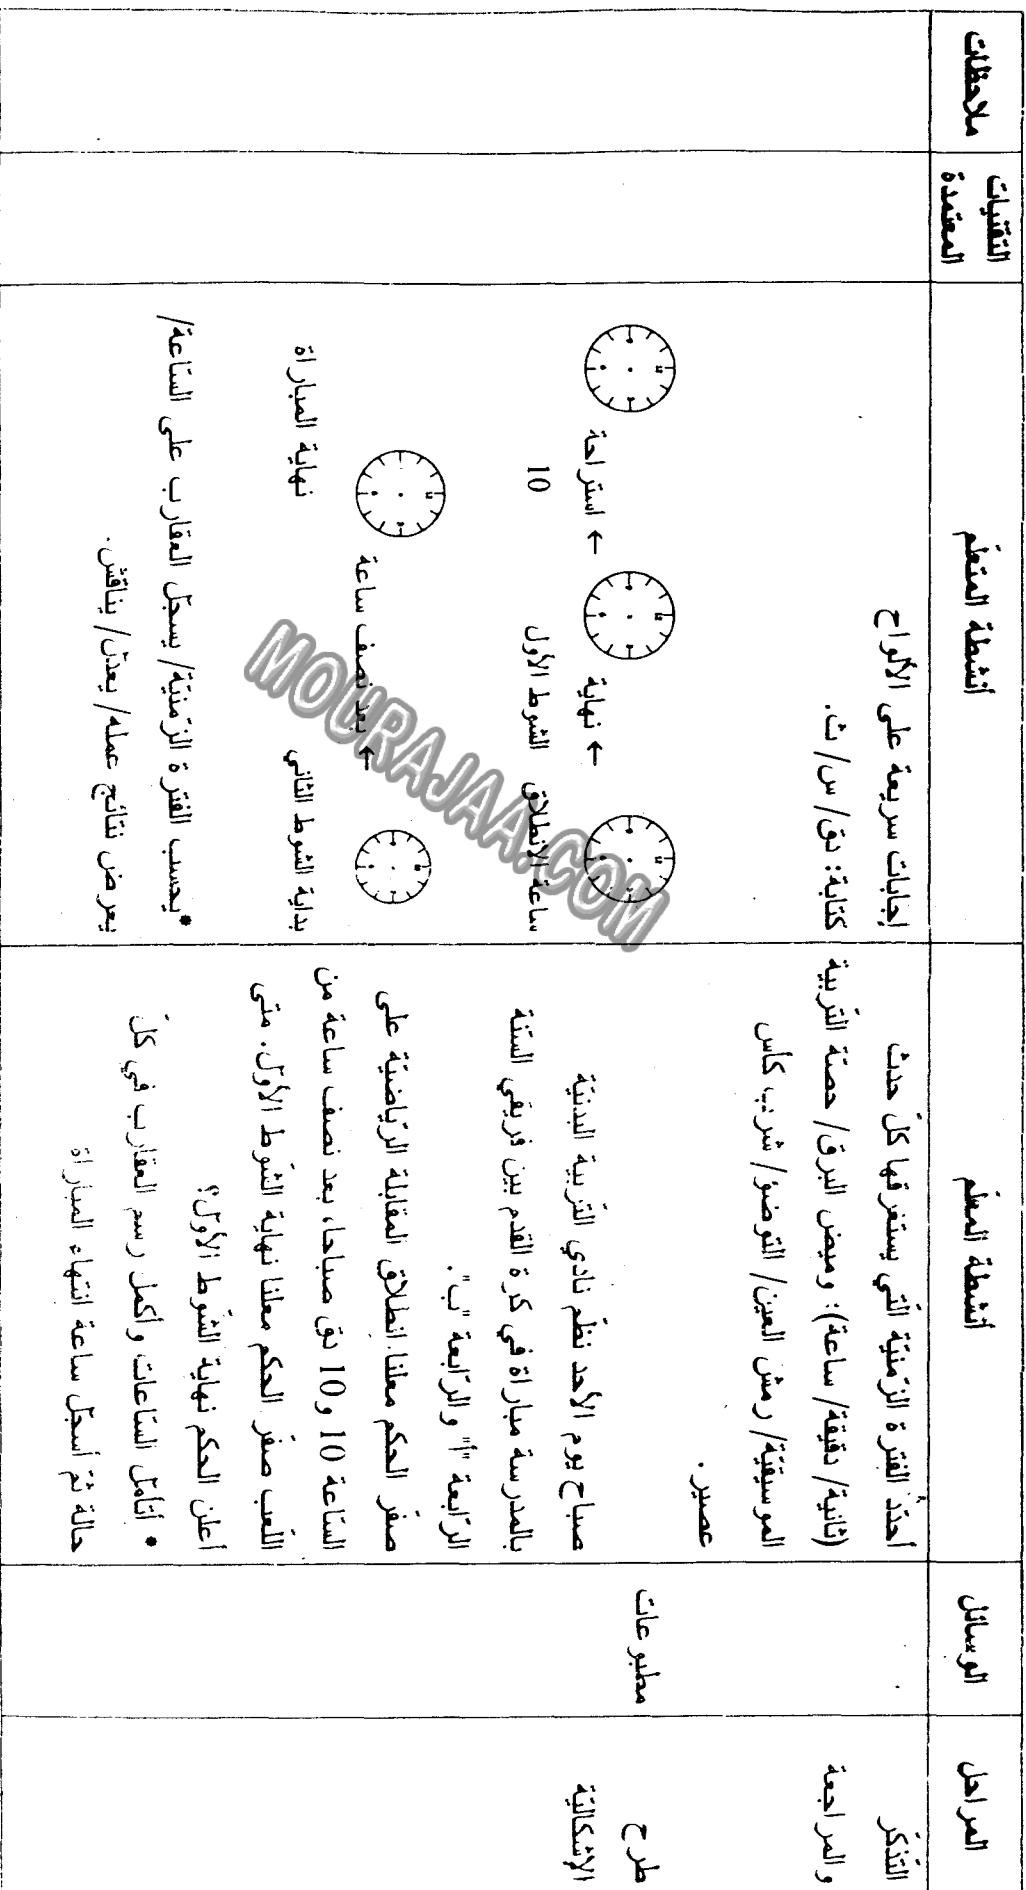 المراحل
الوسائل
أنشطة المعلّم
أنشطة المتعلّم
التقنيات
المعتمدة
ملاحظات
التّذكّر
والمراجعة
أحدّد الفترة الزّمنيّة الّتي يستغرقها كلّ حدث
(ثانية/ دقيقة/ ساعة): وميض البرق/ حصّة التّربية
الموسيقيّة/ رمش العين/ التوضؤ/ شرب كأس
عصير.
إجابات سريعة على الألواح
كتابة: دق/ س/ ث.
طرح
الإشكاليّة
مطبوعات
صباح يوم الأحد نظّم نادي التّربية البدنيّة
بالمدرسة مباراة في كرة القدم بين فريقي السّنة
الرّابعة "أ" والرّابعة "ب".
صفّر الحكم معلنا انطلاق المقابلة الرّياضيّة على
السّاعة 10 و10 دق صباحا، بعد نصف ساعة من
اللّعب صفّر الحكم معلنا نهاية الشّوط الأوّل. متى
أعلن الحكم نهاية الشّوط الأوّل؟
• أتأمّل السّاعات وأكمل رسم العقارب في كلّ
حالة ثمّ أسجّل ساعة انتهاء المباراة
← نهاية ← استراحة
ساعة الانطلاق الشوط الأول 10
← بعد نصف ساعة
بداية الشوط الثاني نهاية المباراة
*يحسب الفترة الزّمنيّة/ يسجّل العقارب على السّاعة/
يعرض نتائج عمله/ يعدّل/ يناقش.
MOURAJAA.COM